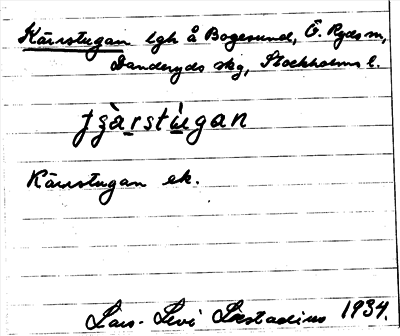 Kärrstugan lgh å Bogesund, Ö. Ryds sn,
Danderyds skg, Stockholms l.
Kärrstugan ek.
Lars-Levi Læstadius 1934.